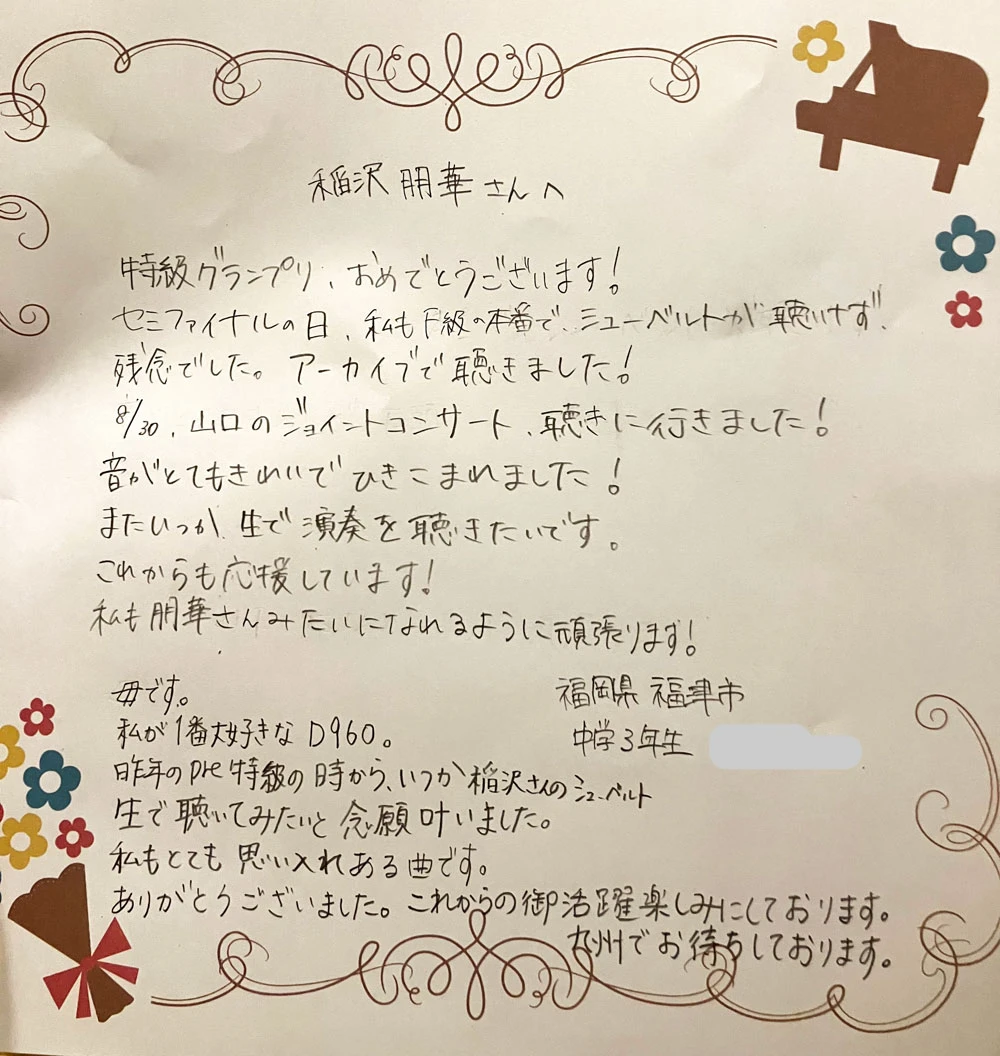 稲沢 朋華さんへ
特級グランプリ、おめでとうございます!
セミファイナルの日、私もF級の本番で、シューベルトが聴けず、
残念でした。アーカイブで聴きました!
8/30、山口のジョイントコンサート、聴きに行きました!
音がとてもきれいでひきこまれました!
またいつか、生で演奏を聴きたいです。
これからも応援しています!
私も朋華さんみたいになれるように頑張ります!
福岡県 福津市
中学3年生
母です。
私が1番大好きなD960。
昨年のpre特級の時から、いつか稲沢さんのシューベルト
生で聴いてみたいと念願叶いました。
私もとても思い入れある曲です。
ありがとうございました。これからの御活躍楽しみにしております。
九州でお待ちしております。